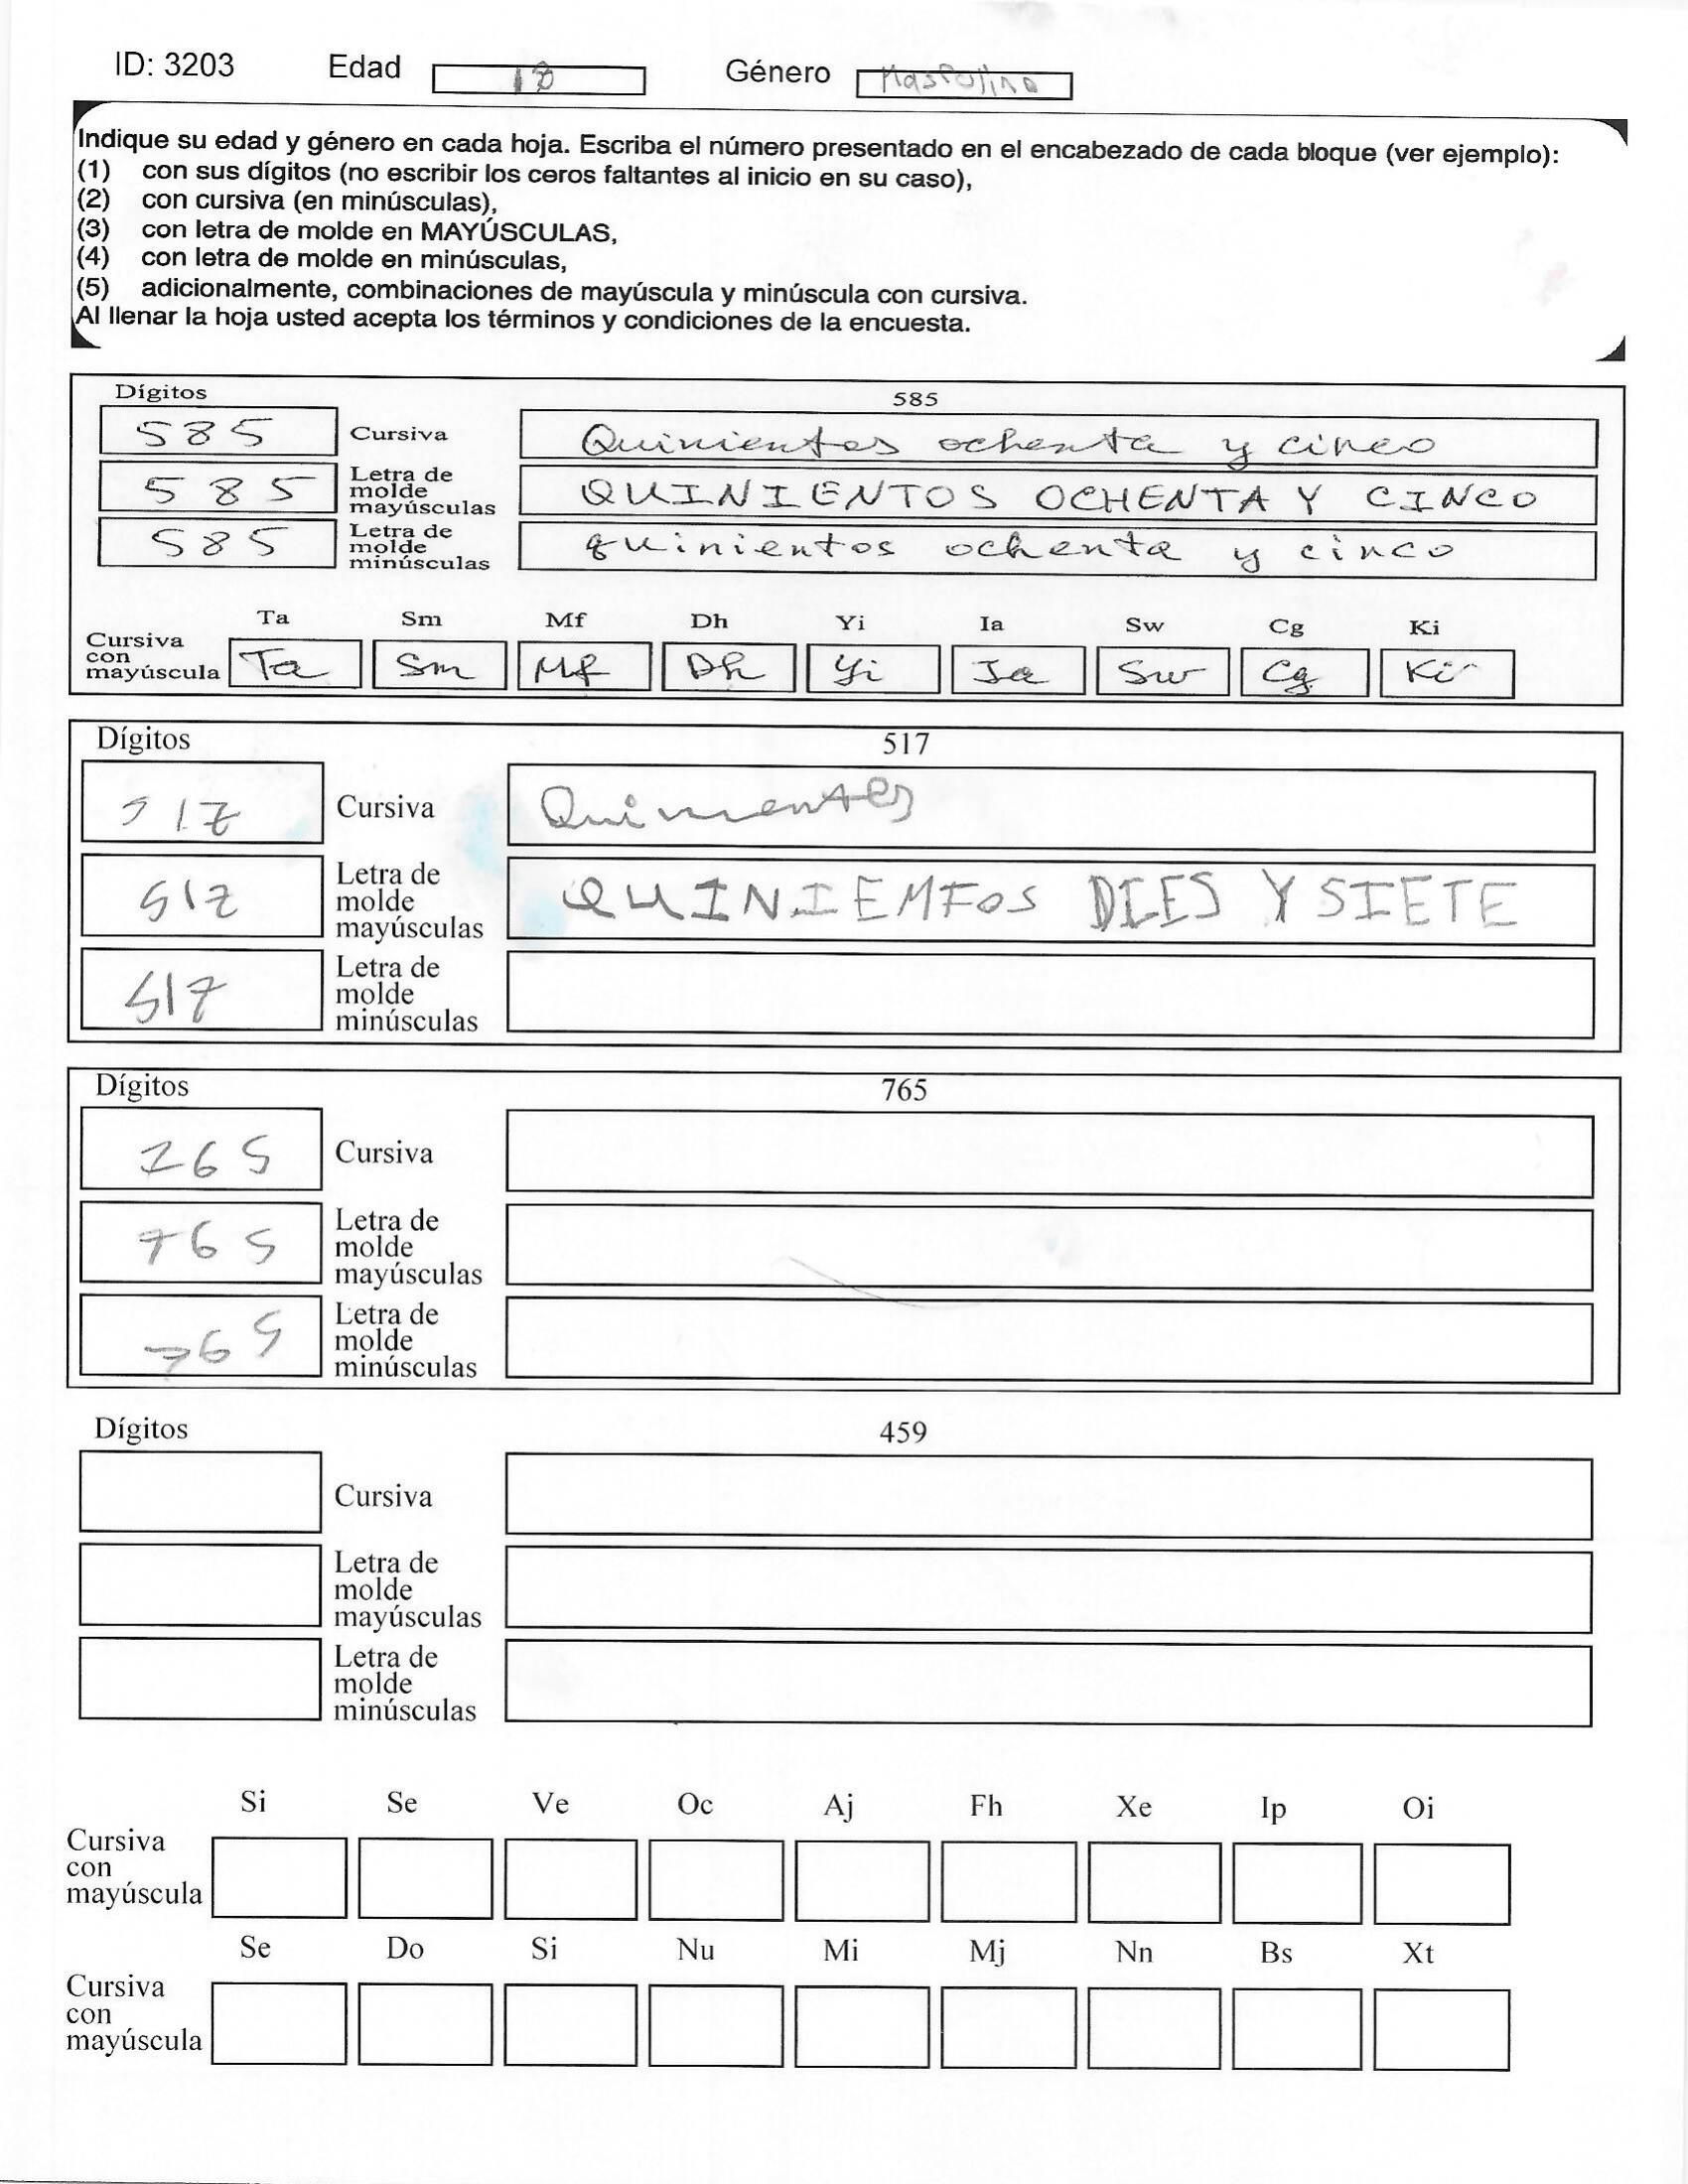 ID: 3203 Edad 18 Género Masculino
Indique su edad y género en cada hoja. Escriba el número presentado en el encabezado de cada bloque (ver ejemplo):
(1) con sus dígitos (no escribir los ceros faltantes al inicio en su caso),
(2) con cursiva (en minúsculas),
(3) con letra de molde en MAYÚSCULAS,
(4) con letra de molde en minúsculas,
(5) adicionalmente, combinaciones de mayúscula y minúscula con cursiva.
Al llenar la hoja usted acepta los términos y condiciones de la encuesta.
Dígitos 585
585 Cursiva Quinientos ochenta y cinco
585 Letra de molde mayúsculas QUINIENTOS OCHENTA Y CINCO
585 Letra de molde minúsculas quinientos ochenta y cinco
Ta Sm Mf Dh Yi Ia Sw Cg Ki
Cursiva con mayúscula Ta Sm Mf Dh Yi Ia Sw Cg Ki
Dígitos 517
517 Cursiva
517 Letra de molde mayúsculas QUINIEMFOS DIES Y SIETE
517 Letra de molde minúsculas
Dígitos 765
765 Cursiva
765 Letra de molde mayúsculas
765 Letra de molde minúsculas
Dígitos 459
Cursiva
Letra de molde mayúsculas
Letra de molde minúsculas
Si Se Ve Oc Aj Fh Xe Ip Oi
Cursiva con mayúscula
Se Do Si Nu Mi Mj Nn Bs Xt
Cursiva con mayúscula